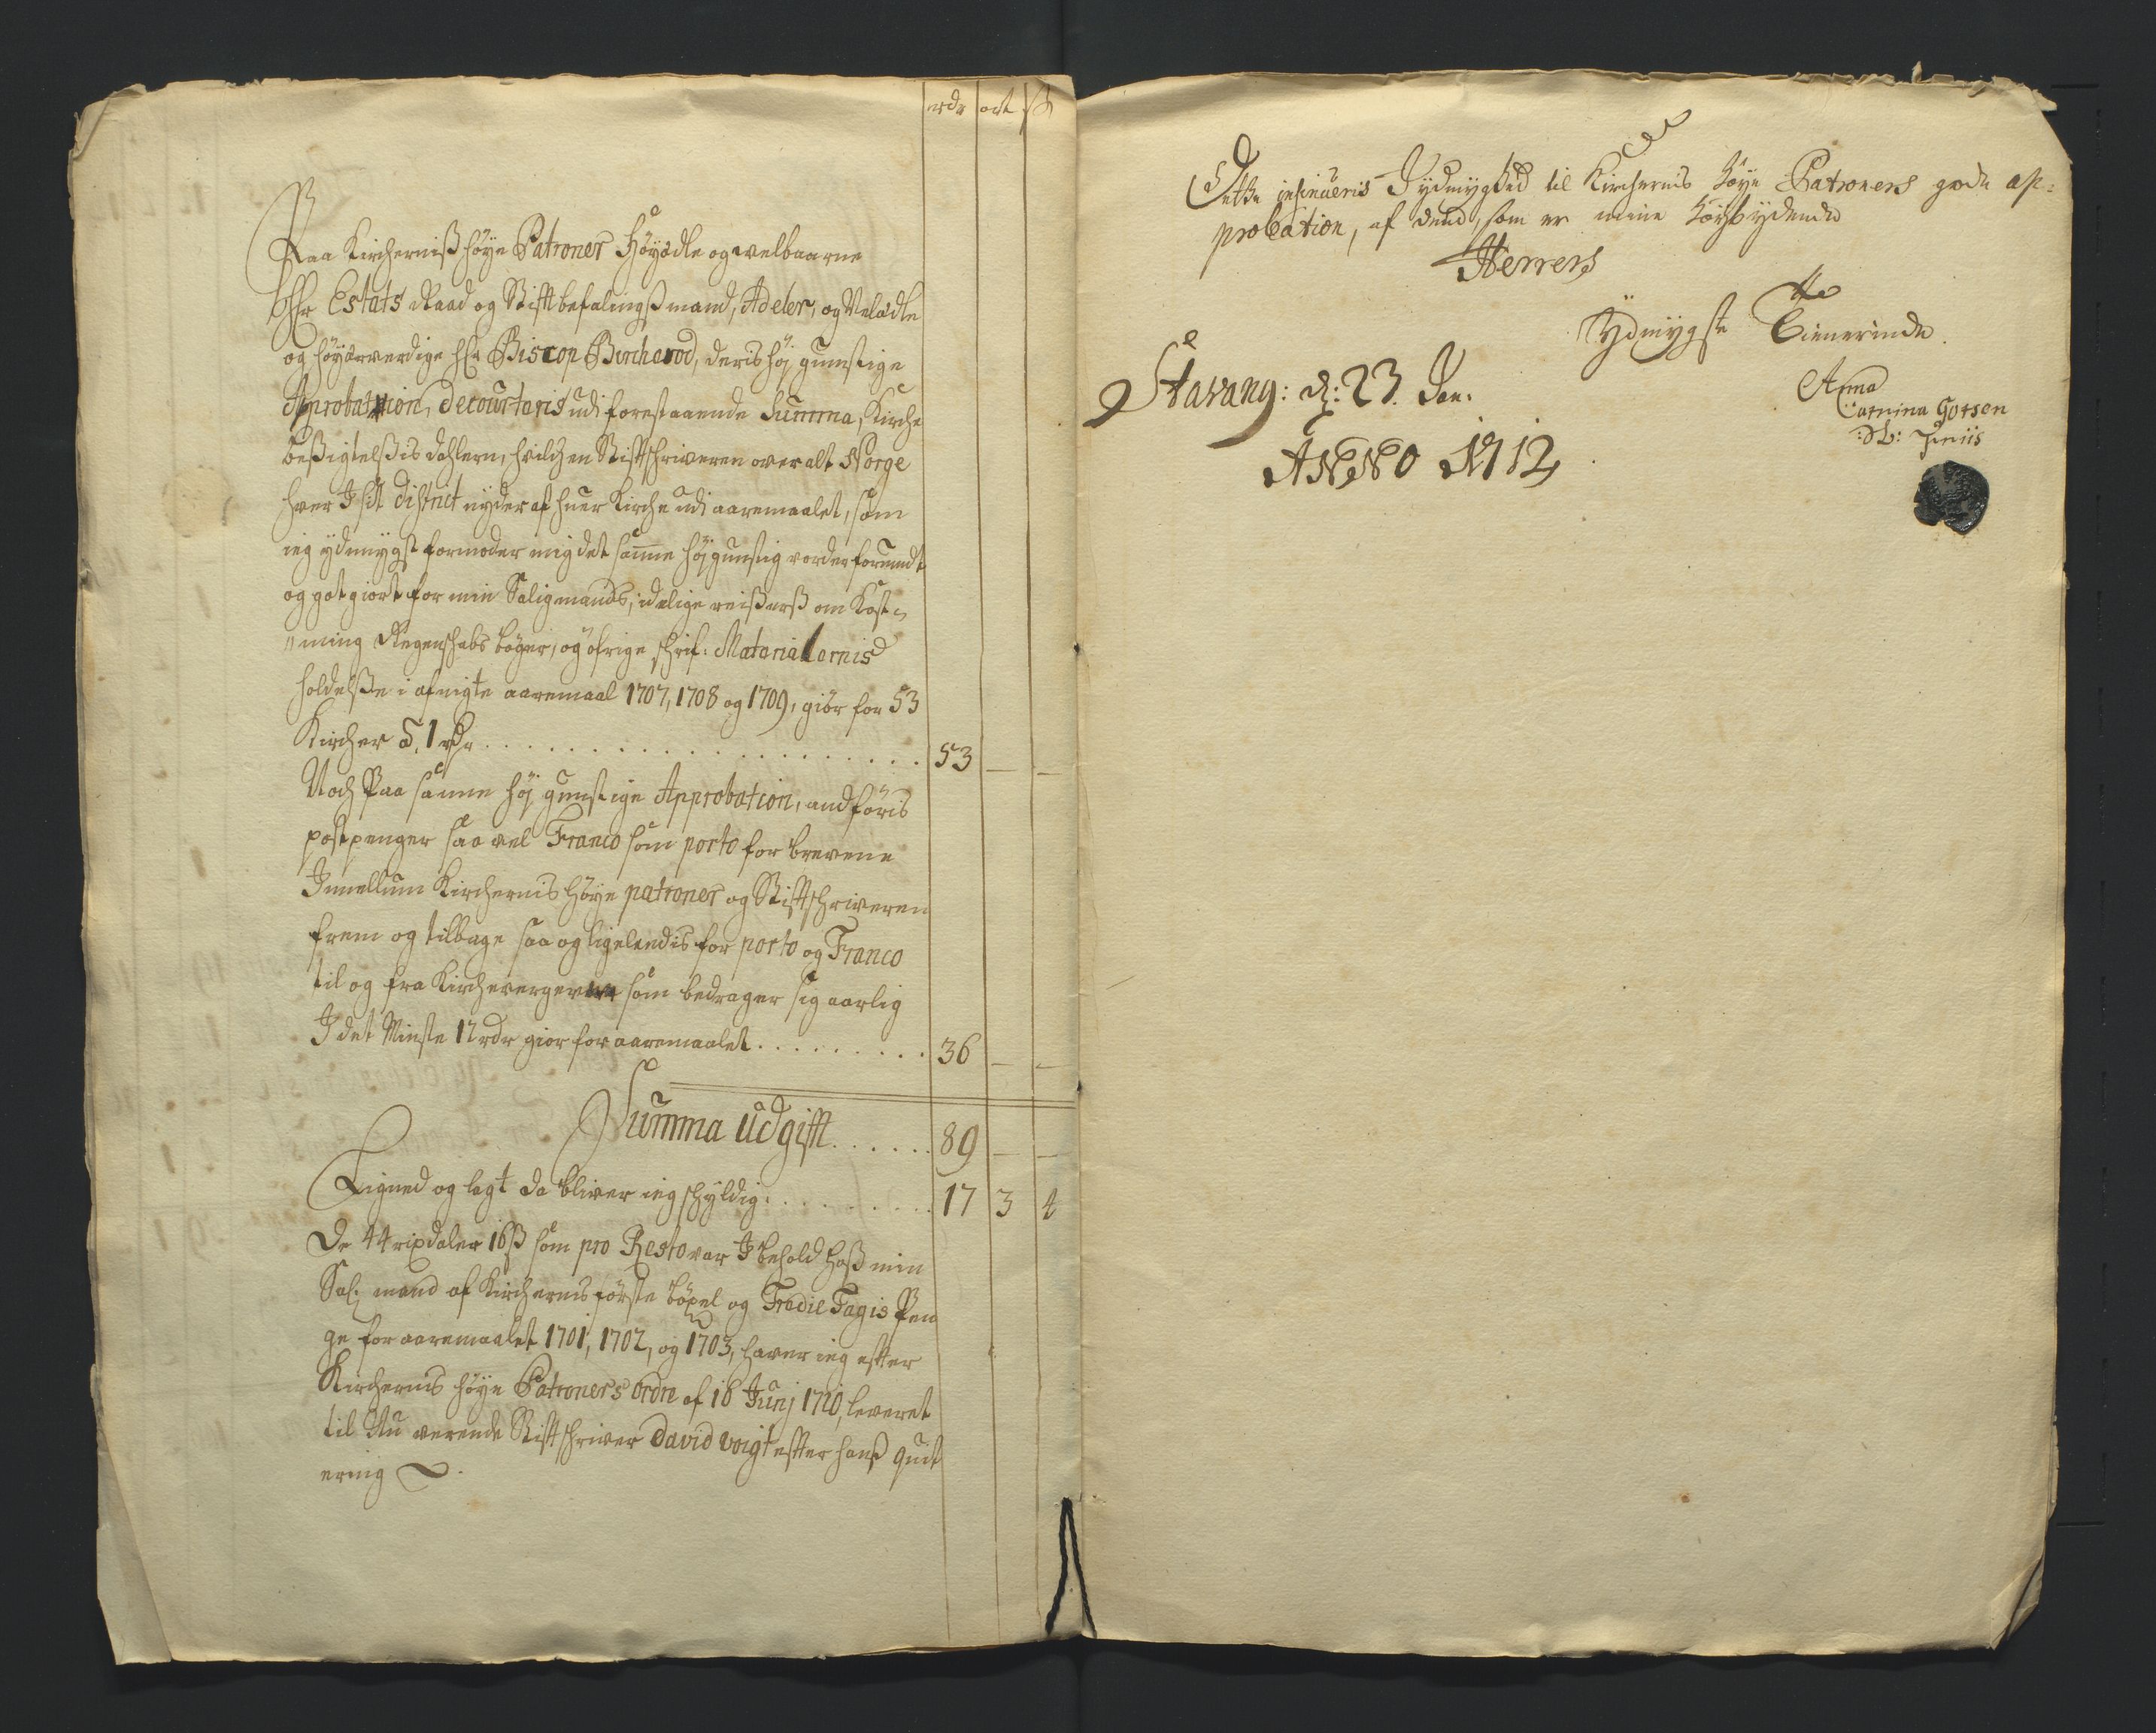 rdr ort ß
Paa Kircherniß høye Patroner Høyædle og welbaarne
Hr Estats Raad og Stifftbefalingßmand, Adeler, og Velædle
og høyærverdige hr Biscop Bircherod, deris høj gunstige
Approbation, decourteris udj forestaaende Summa, Kirche
beßigtelßis dahlern, hvilchen Stifftschriveren over alt Norge
hver J sit district nyder af huer Kirche udj aaremaalet, som
ieg ydmygst formoder mig det samme høj gunstig vorder forundt
og got giort for min Salig mands, idelige reißerß om kost-
"ning Regenschabs bøger, og øfrige schrif: Materialernis
holdelße i afvigte aaremaal 1707, 1708 og 1709, giør for 53
Kircher à, 1 rdr . . . . . . . . . . . . . 53 — —
Noch Paa samme høj gunstige Approbation, andføris
postpenger saa vel Franco som porto for brevene
Jmellum Kirchernis høye patroner og Stifftschriveren
frem og tilbage saa og ligelendis for porto og Franco
til og fra Kirchevergerne som bedrager sig aarlig
J det Minste 12 rdr giør for aaremaalet . . . . . . . . . 36 — —
Summa udgifft . . . . . . 89 — —
Ligned og lagt da bliver ieg schyldig . . . . . . . . 17 3 4
De 44 rixdaler 16 ß som pro Resto var J behold hoß min
Sal: mand af Kirchernis første bøxel og Tredie Tagis Pen
ge for aaremaalet 1701, 1702, og 1703, haver ieg efter
Kirchernis høye Patroners ordre af 16 Junj 1710, leveret
til Nu verende Stifftschriver David Voigt effter hanß quit
ering
Dette insinueris J ydmyghed til Kirchernis høye Patroners gode ap-
probation, af dend, som er mine høystbydende
Herrers
Ydmygste Tienerinde
Stavang: d: 23. Jan:
ANNO 1712
Anna
Catrina Gotsen